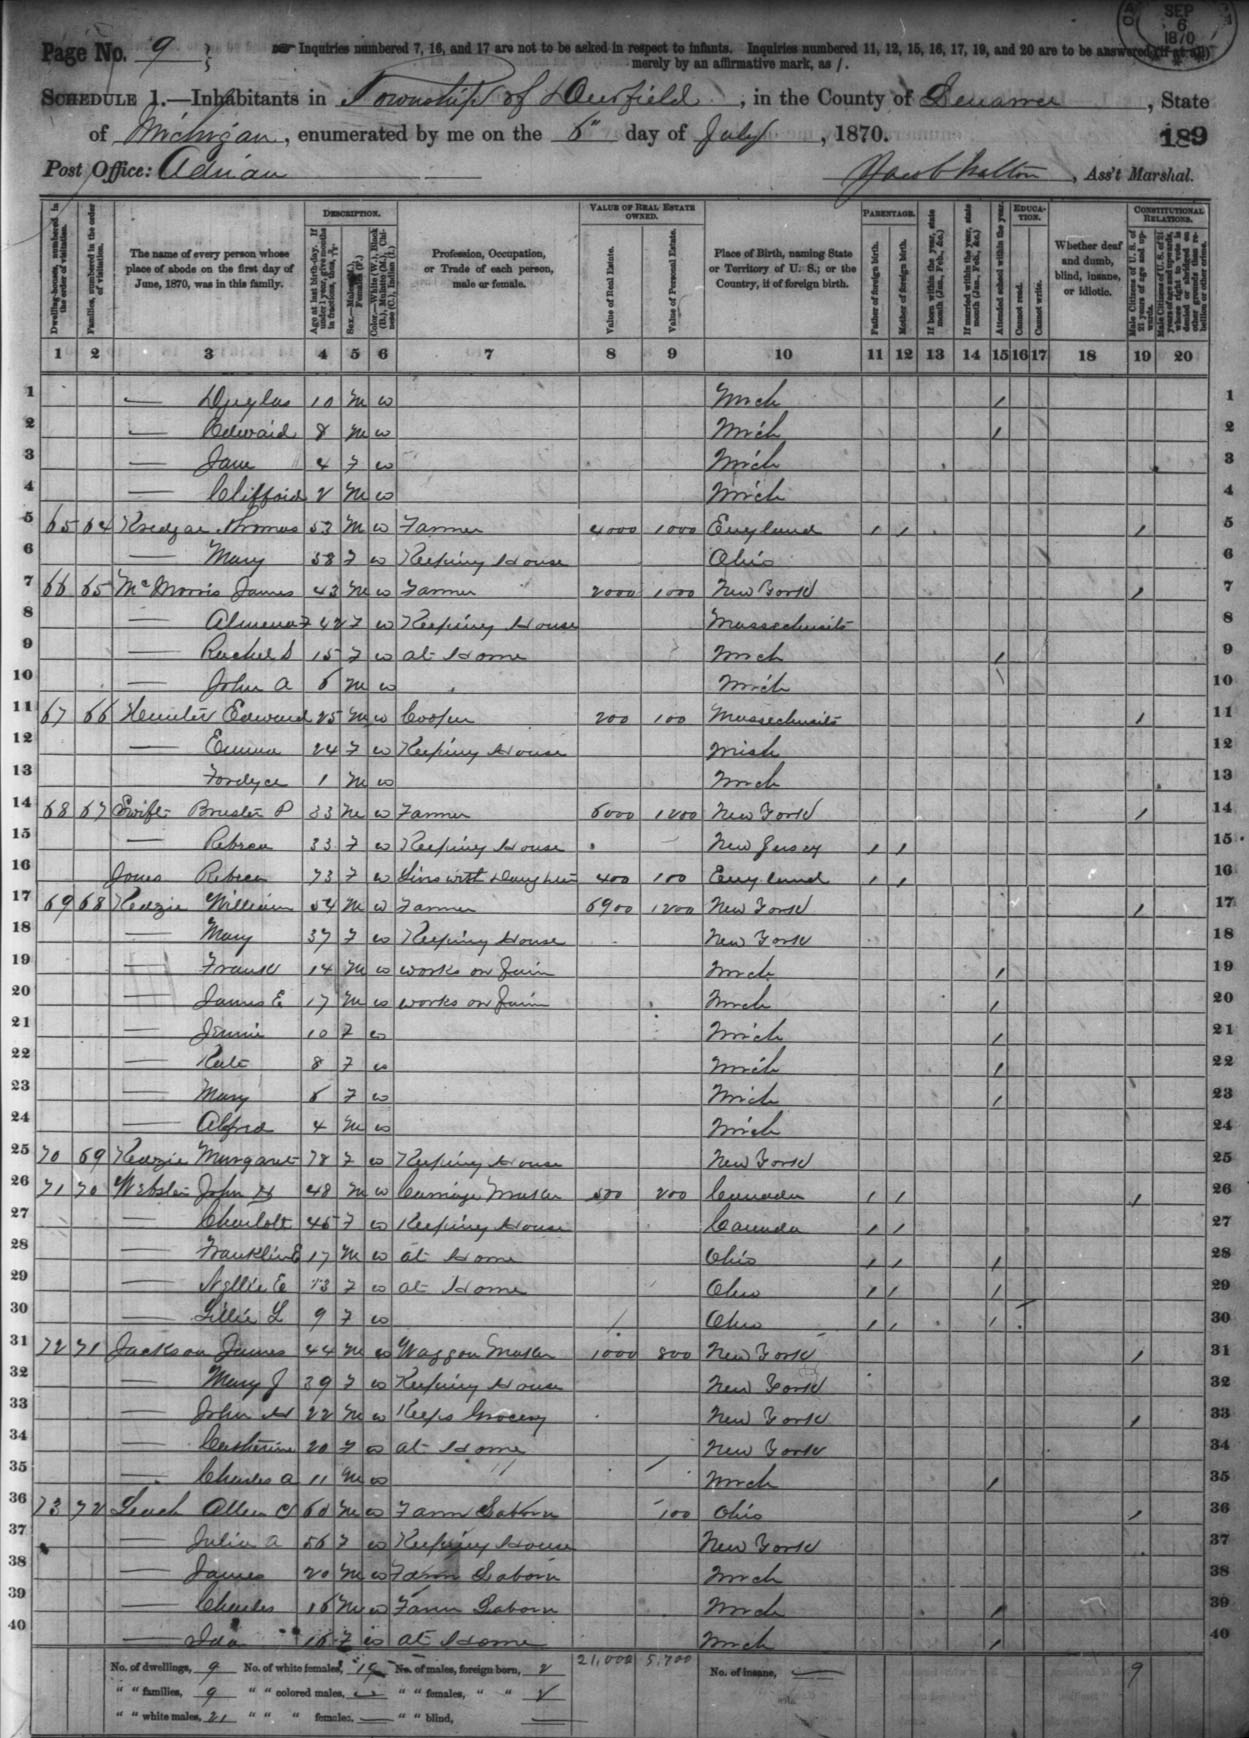 SEP
6
1870
Page No. 9
Inquiries numbered 7, 16, and 17 are not to be asked in respect to infants. Inquiries numbered 11, 12, 15, 16, 17, 19, and 20 are to be answered (if at all)
merely by an affirmative mark, as /.
SCHEDULE 1.—Inhabitants in Township of Deerfield, in the County of Lenawee, State
of Michigan, enumerated by me on the 6" day of July, 1870.
189
Post Office: Adrian
Jacob Walton, Ass't Marshal.
Dwelling-houses, numbered in the order of visitation.
Families, numbered in the order of visitation.
The name of every person whose place of abode on the first day of June, 1870, was in this family.
DESCRIPTION.
Age at last birth-day. If under 1 year, give months in fractions, thus,
Sex.—Males (M.), Females (F.)
Color.—White (W.), Black (B.), Mulatto (M.), Chinese (C.), Indian (I.)
Profession, Occupation, or Trade of each person, male or female.
VALUE OF REAL ESTATE OWNED.
Value of Real Estate.
Value of Personal Estate.
Place of Birth, naming State or Territory of U. S.; or the Country, if of foreign birth.
PARENTAGE.
Father of foreign birth.
Mother of foreign birth.
If born within the year, state month (Jan., Feb., &c.)
If married within the year, state month (Jan., Feb., &c.)
Attended school within the year.
EDUCATION.
Cannot read.
Cannot write.
Whether deaf and dumb, blind, insane, or idiotic.
CONSTITUTIONAL RELATIONS.
Male Citizens of U. S. of 21 years of age and upwards.
Male Citizens of U. S. of 21 years of age and upwards, whose right to vote is denied or abridged on other grounds than rebellion or other crime.
1 2 3 4 5 6 7 8 9 10 11 12 13 14 15 16 17 18 19 20
1 — Duglas 10 M W Mich / 1
2 — Edward 8 M W Mich / 2
3 — Jane 4 F W Mich 3
4 — Clifford 2 M W Mich 4
5 65 64 Thomas 53 M W Farmer 4000 1000 England / / / 5
6 — Mary 38 F W Keeping House Ohio 6
7 66 65 McMorris James 43 M W Farmer 2000 1000 New York / 7
8 — 42 F W Keeping House Massachusits 8
9 — Rachel S 15 F W at Home Mich / 9
10 — John A 6 M W Mich \ 10
11 67 66 Edward 25 M W Cooper 200 100 Massechusits / 11
12 — Emma 24 F W Keeping House Mich 12
13 Fordyce 1 M W Mich 13
14 68 67 Swift P 33 M W Farmer 6000 1200 New York / 14
15 — Rebeca 33 F W Keeping House New Jersey / / 15
16 Jones Rebeca 73 F W Livs with Daughter 400 100 England / / 16
17 69 68 Kedzie William 54 M W Farmer 6900 1200 New York / 17
18 — Mary 37 F W Keeping House New York 18
19 — Frank 14 M W works on farm Mich / 19
20 — James E 17 M W works on farm Mich / 20
21 — Jennie 10 F W Mich / 21
22 — Kate 8 F W Mich / 22
23 — Mary 6 F W Mich / 23
24 — Alfred 4 M W Mich 24
25 70 69 Kedzie Margaret 78 F W Keeping House New York 25
26 71 70 Webster John H 48 M W Carriage Maker 500 200 Canada / / / 26
27 — Charlott 45 F W Keeping House Canada / / 27
28 — Franklin E 17 M W at Home Ohio / / / 28
29 — Nellie E 13 F W at Home Ohio / / / 29
30 — Lillie L 9 F W Ohio / / / 30
31 72 71 Jackson James 44 M W Waggon Maker 1000 800 New York / 31
32 — Mary J 39 F W Keeping House New York 32
33 — John H 22 M W Keeps Grocery New York / 33
34 — Catherine 20 F W at Home New York 34
35 — Charles A 11 M W Mich / 35
36 73 72 Leach Allen C 60 M W Farm Laborer 100 Ohio / 36
37 — Julia A 56 F W Keeping House New York 37
38 — James 20 M W Farm Laborer Mich 38
39 — Charles 16 M W Farm Laborer Mich / 39
40 — Ida 16 F W at Home Mich / 40
No. of dwellings, 9 No. of white females, 19 No. of males, foreign born, 2 21,000 5,700 No. of insane, — 9
" " families, 9 " " colored males, — " " females, " " 2
" " white males, 21 " " " females, — " " blind, —